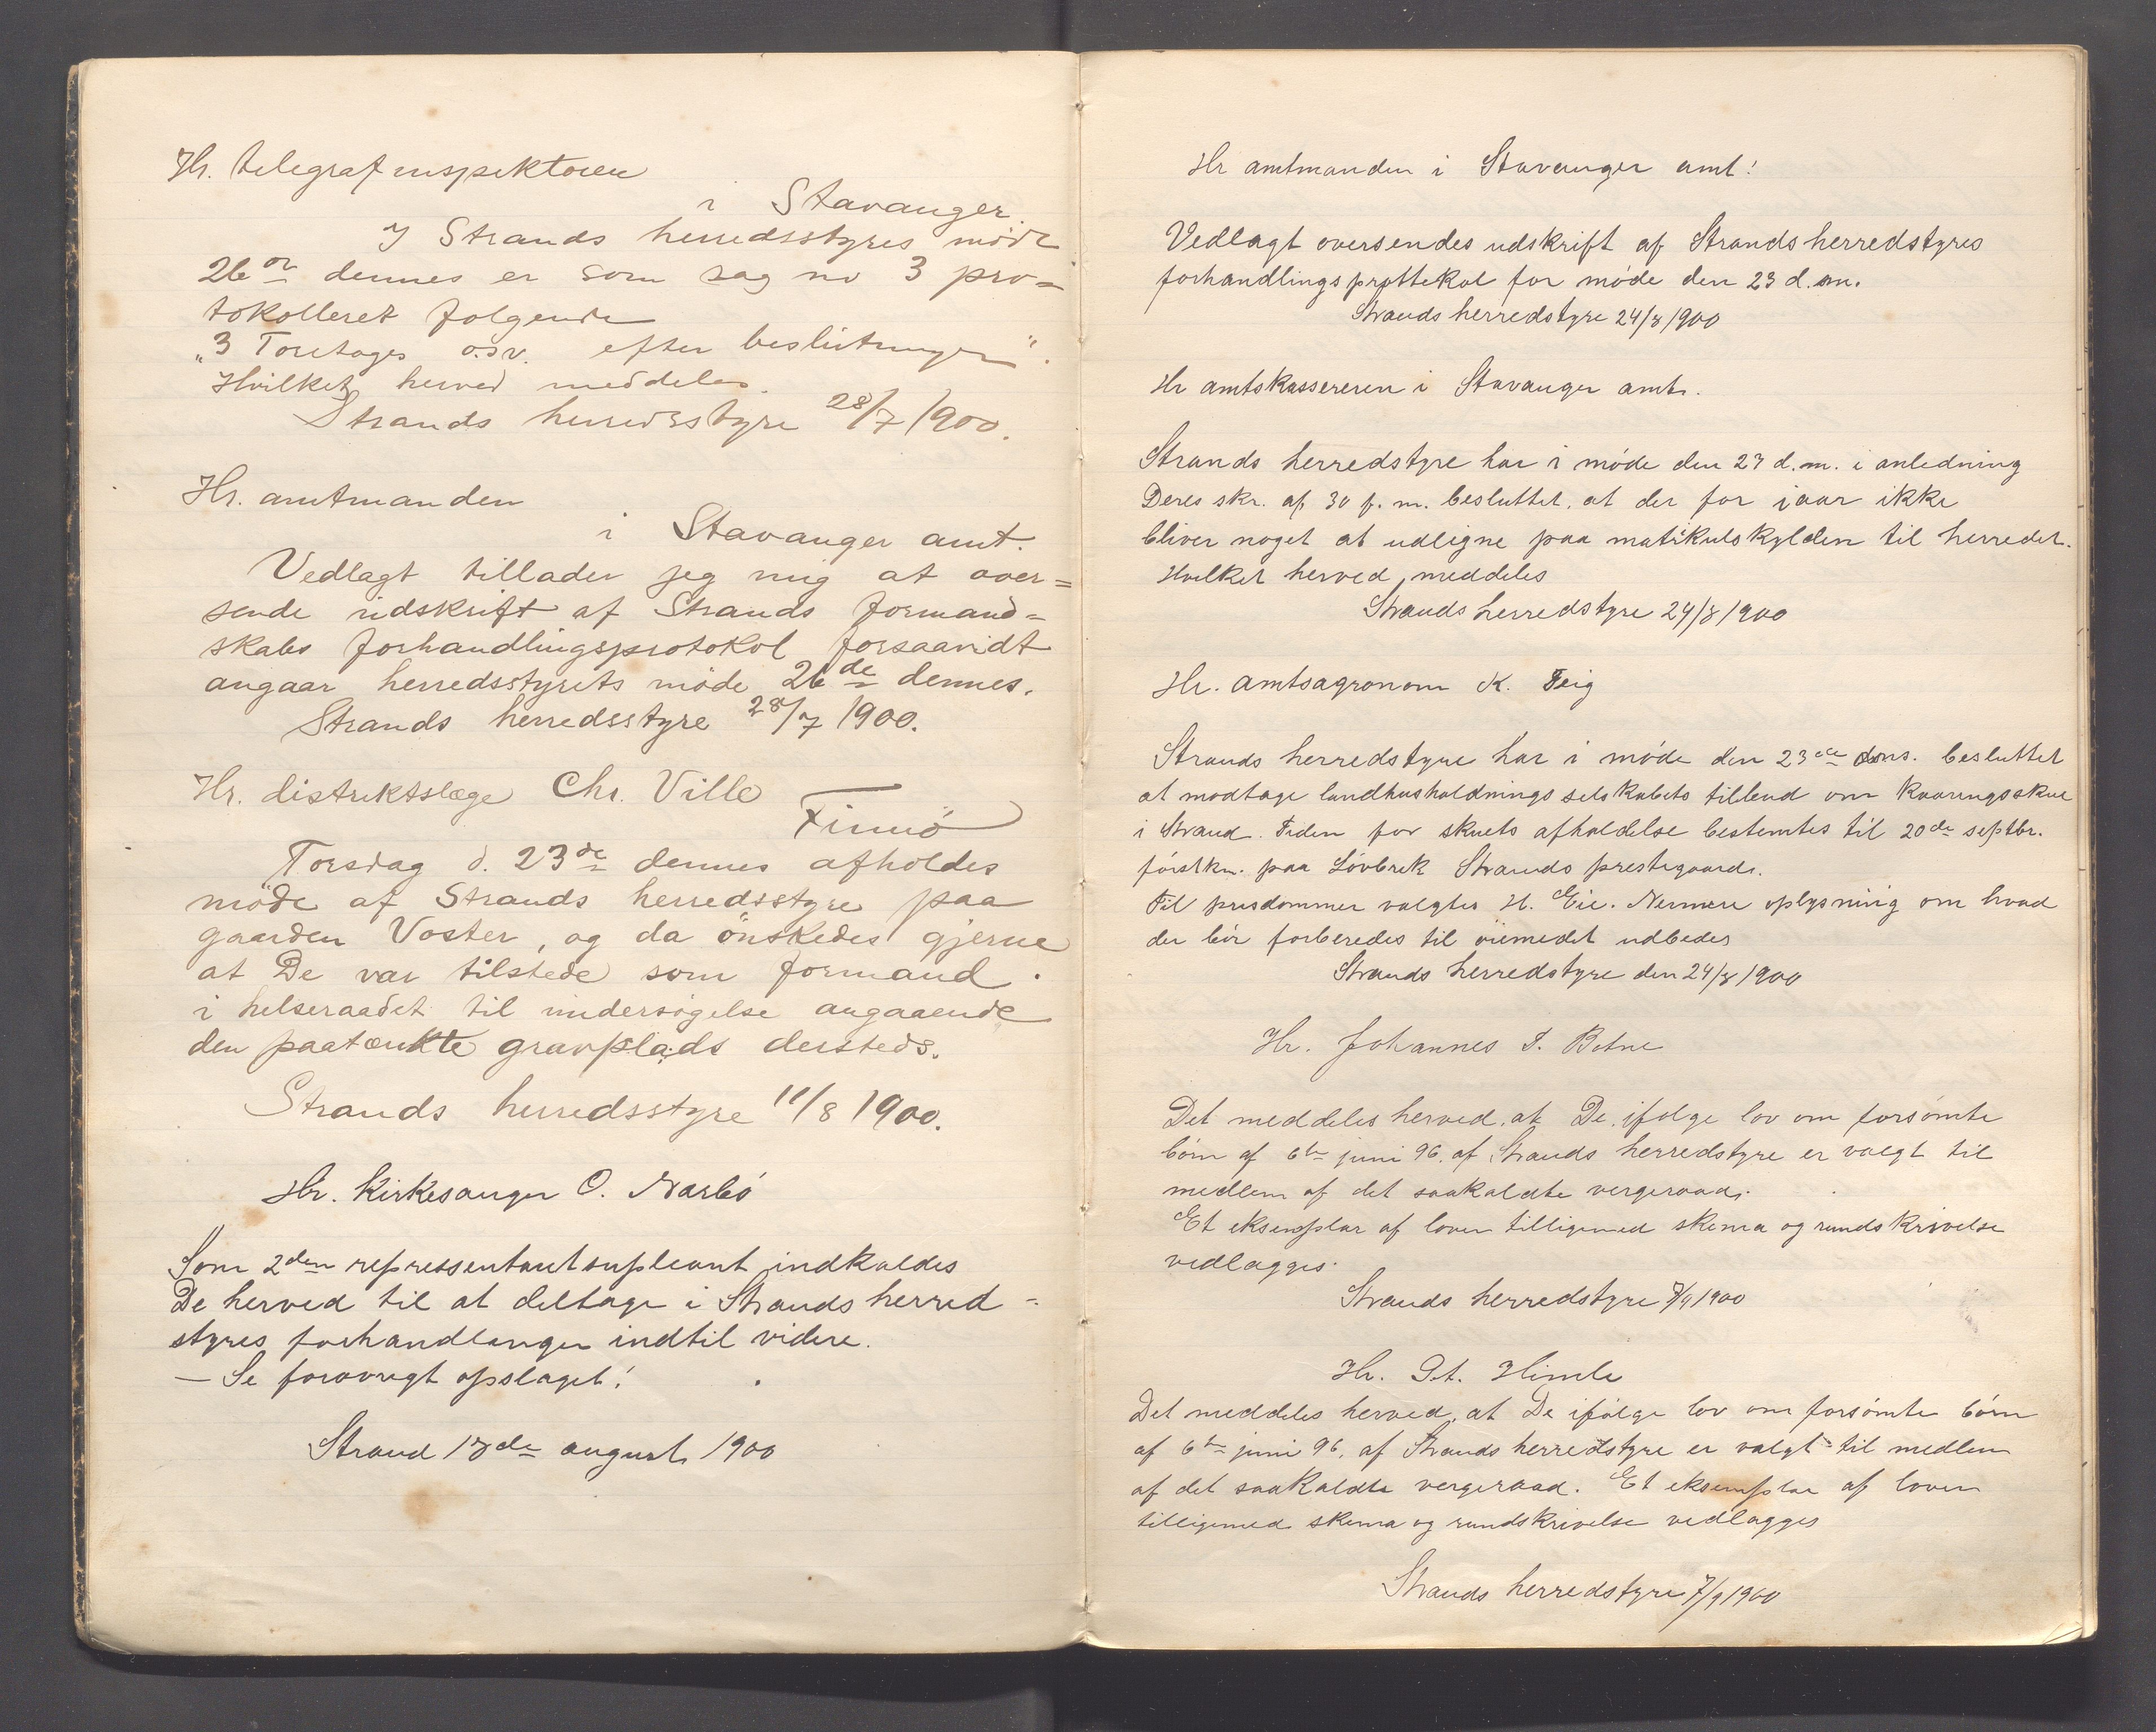 Hr. telegrafinspektøren
i Stavanger.
I Strands herredsstyres möde
26de dennes er som sag no 3 pro=
tokolleret følgende
"3 Foretages o.s.v. efter beslutninger".
Hvilket herved meddeles.
Strands herredsstyre 28/7 1900.
Hr. amtmanden
i Stavanger amt.
Vedlagt tillader jeg mig at over=
sende udskrift af Strands formand=
skabs forhandlingsprotokol forsaavidt
angaar herredsstyrets möde 26de dennes.
Strands herredsstyre 28/7 1900.
Hr. distriktslæge Chr. Ville
Finnö
Torsdag d. 23de dennes afholdes
møde af Strands herredsstyre paa
gaarden Voster, og da önskedes gjerne
at De var tilstede som formand
i helseraadet til undersøgelse angaaende
den paatænkte gravplads dersteds.
Strands herredsstyre 11/8 1900.
Hr. Kirkesanger O. Narbö
Som 2den repressentantsupleant indkaldes
De herved til at deltage i Strands herred=
styres forhandlinger indtil videre.
— Se forøvrigt opslaget!
Strand 18de august 1900
Hr amtmanden i Stavanger amt!
Vedlagt oversendes udskrift af Strands herredstyres
forhandlingsprottekol for møde den 23 d. m.
Strands herredstyre 24/8 1900
Hr amtskassereren i Stavanger amt.
Strands herredstyre har i møde den 23 d.m. i anledning
Deres skr. af 30 f. m. besluttet, at der for iaar ikke
bliver noget at udligne paa matrikulskylden til herredet.
Hvilket herved meddeles
Strands herredstyre 24/8 1900
Hr. amtsagronom K. Feig
Strands herredstyre har i møde den 23de dns. besluttet
at modtage landhusholdningsselskabets tilbud om Kaaringsskue
i Strand. Tiden for skuets afholdelse bestemtes til 20de septbr.
førstkm. paa Løvbrek Strands prestegaard.
Til prisdommer valgtes H. Eie. Nermere oplysning om hvad
der bör forberedes til öiemedet udbedes
Strands herredstyre den 24/8 1900
Hr. Johannes T. Botne
Det meddeles herved, at De ifølge lov om forsømte
börn af 6te juni 96. af Strands herredstyre er valgt til
medlem af det saakaldte vergeraad.
Et eksemplar af loven tilligemed skema og rundskrivelse
vedlægges.
Strands herredstyre 7/9 1900
Hr. Pt. Himle
Det meddeles herved, at De ifølge lov om forsømte börn
af 6te juni 96. af Strands herredstyre er valgt til medlem
af det saakaldte vergeraad. Et eksemplar af loven
tilligemed skema og rundskrivelse vedlægges
Strands herredstyre 7/9 1900